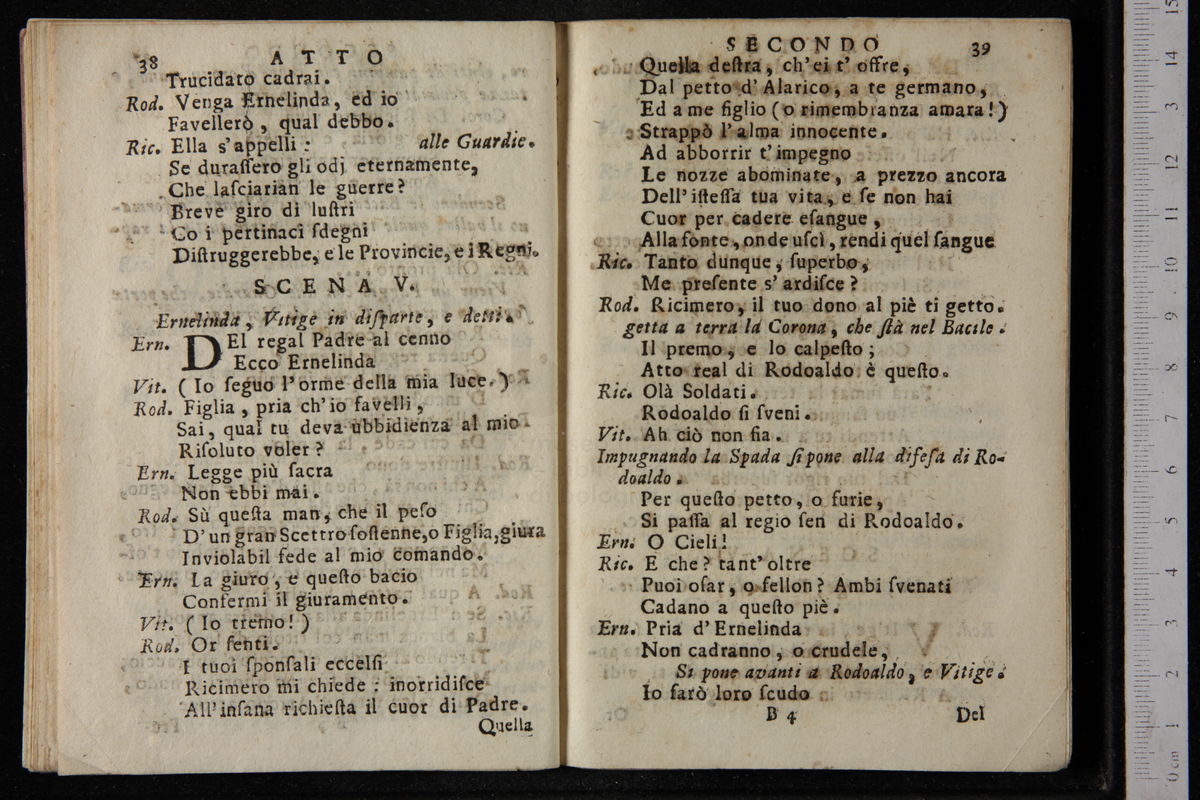 38 ATTO
Trucidato cadrai.
Rod. Venga Ernelinda, ed io
Favellerò, qual debbo.
Ric. Ella s'appelli: alle Guardie.
Se duraſſero gli odj eternamente,
Che laſciarian le guerre?
Breve giro di luſtri
Co i pertinaci ſdegni
Diſtruggerebbe, e le Provincie, e i Regni.
SCENA V.
Ernelinda, Vitige in diſparte, e detti.
Ern. DEl regal Padre al cenno
Ecco Ernelinda
Vit. (Io ſeguo l'orme della mia luce.)
Rod. Figlia, pria ch'io favelli,
Sai, qual tu deva ubbidienza al mio
Riſoluto voler?
Ern. Legge più ſacra
Non ebbi mai.
Rod. Sù queſta man, che il peſo
D'un gran Scettro ſoſtenne, o Figlia, giura
Inviolabil fede al mio comando.
Ern. La giuro, e queſto bacio
Confermi il giuramento.
Vit. (Io tremo!)
Rod. Or ſenti.
I tuoi ſponſali eccelſi
Ricimero mi chiede: inorridiſce
All'inſana richieſta il cuor di Padre.
Quella
SECONDO 39
Quella deſtra, ch'ei t'offre,
Dal petto d'Alarico, a te germano,
Ed a me figlio (o rimembranza amara!)
Strappò l'alma innocente.
Ad abborrir t'impegno
Le nozze abominate, a prezzo ancora
Dell'iſteſſa tua vita, e ſe non hai
Cuor per cadere eſangue,
Alla fonte, onde uſcì, rendi quel ſangue
Ric. Tanto dunque, ſuperbo,
Me preſente s'ardiſce?
Rod. Ricimero, il tuo dono al piè ti getto.
getta a terra la Corona, che ſtà nel Bacile.
Il premo, e lo calpeſto;
Atto real di Rodoaldo è queſto.
Ric. Olà Soldati.
Rodoaldo ſi ſveni.
Vit. Ah ciò non ſia.
Impugnando la Spada ſi pone alla difeſa di Ro-
doaldo.
Per queſto petto, o furie,
Si paſſa al regio ſen di Rodoaldo.
Ern. O Cieli!
Ric. E che? tant'oltre
Puoi oſar, o fellon? Ambi ſvenati
Cadano a queſto piè.
Ern. Pria d'Ernelinda
Non cadranno, o crudele,
Si pone avanti a Rodoaldo, e Vitige.
Io farò loro ſcudo
B 4 Del